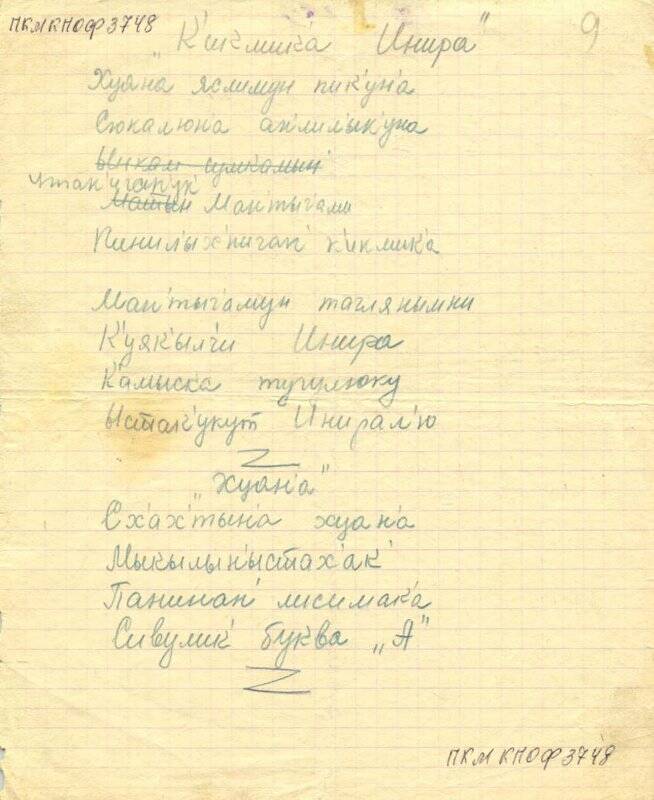 ПКМ КПОФ 3748
9
„К'икмика Инира"
Хуяна яслимун пик'ун'а
Сюкалюн'а ан'лилык'уна
Ын'кам сумкамын'
Чтан'угаңук
Матын Ман'тыг'ами
Пинилых'пигап' к'икмика
Ман'тыг'амун таглянымни
К'уяк'ылг'и Инира
К'амыска тугулюку
Ыстак'укут Инирал'ю
„Хуан'а"
Сх'ах'тын'а хуан'а
Мыкылын'ыстах'ак'
Панинан' лисимак'а
Сивулик' буква „А"
ПКМ КПОФ 3748